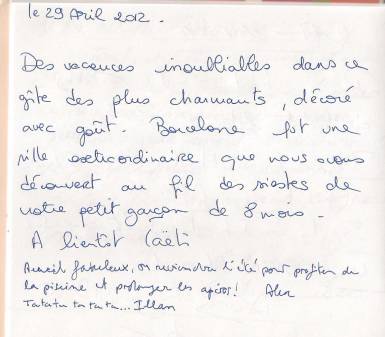 le 29 April 2012.
Des vacances inoubliables dans ce
gîte des plus charmants, décoré
avec goût. Barcelone fut une
ville extraordinaire que nous avons
découvert au fil des siestes de
notre petit garçon de 8 mois -
A bientôt Caëti
Accueil fabuleux, on reviendra l'été pour profiter de
la piscine et prolonger les apéros! Alex
Tatata ta ta ta... Illan